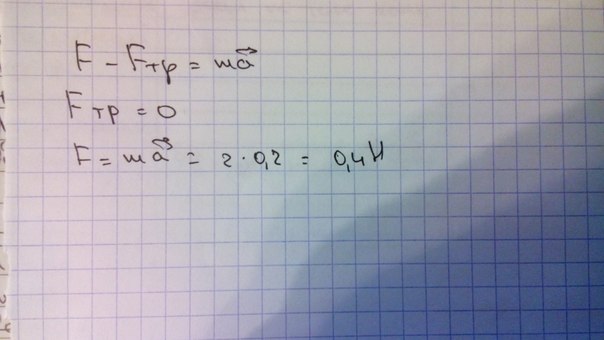 F - Fтр = ma⃗
Fтр = 0
F = ma⃗ = 2 · 0,2 = 0,4 Н